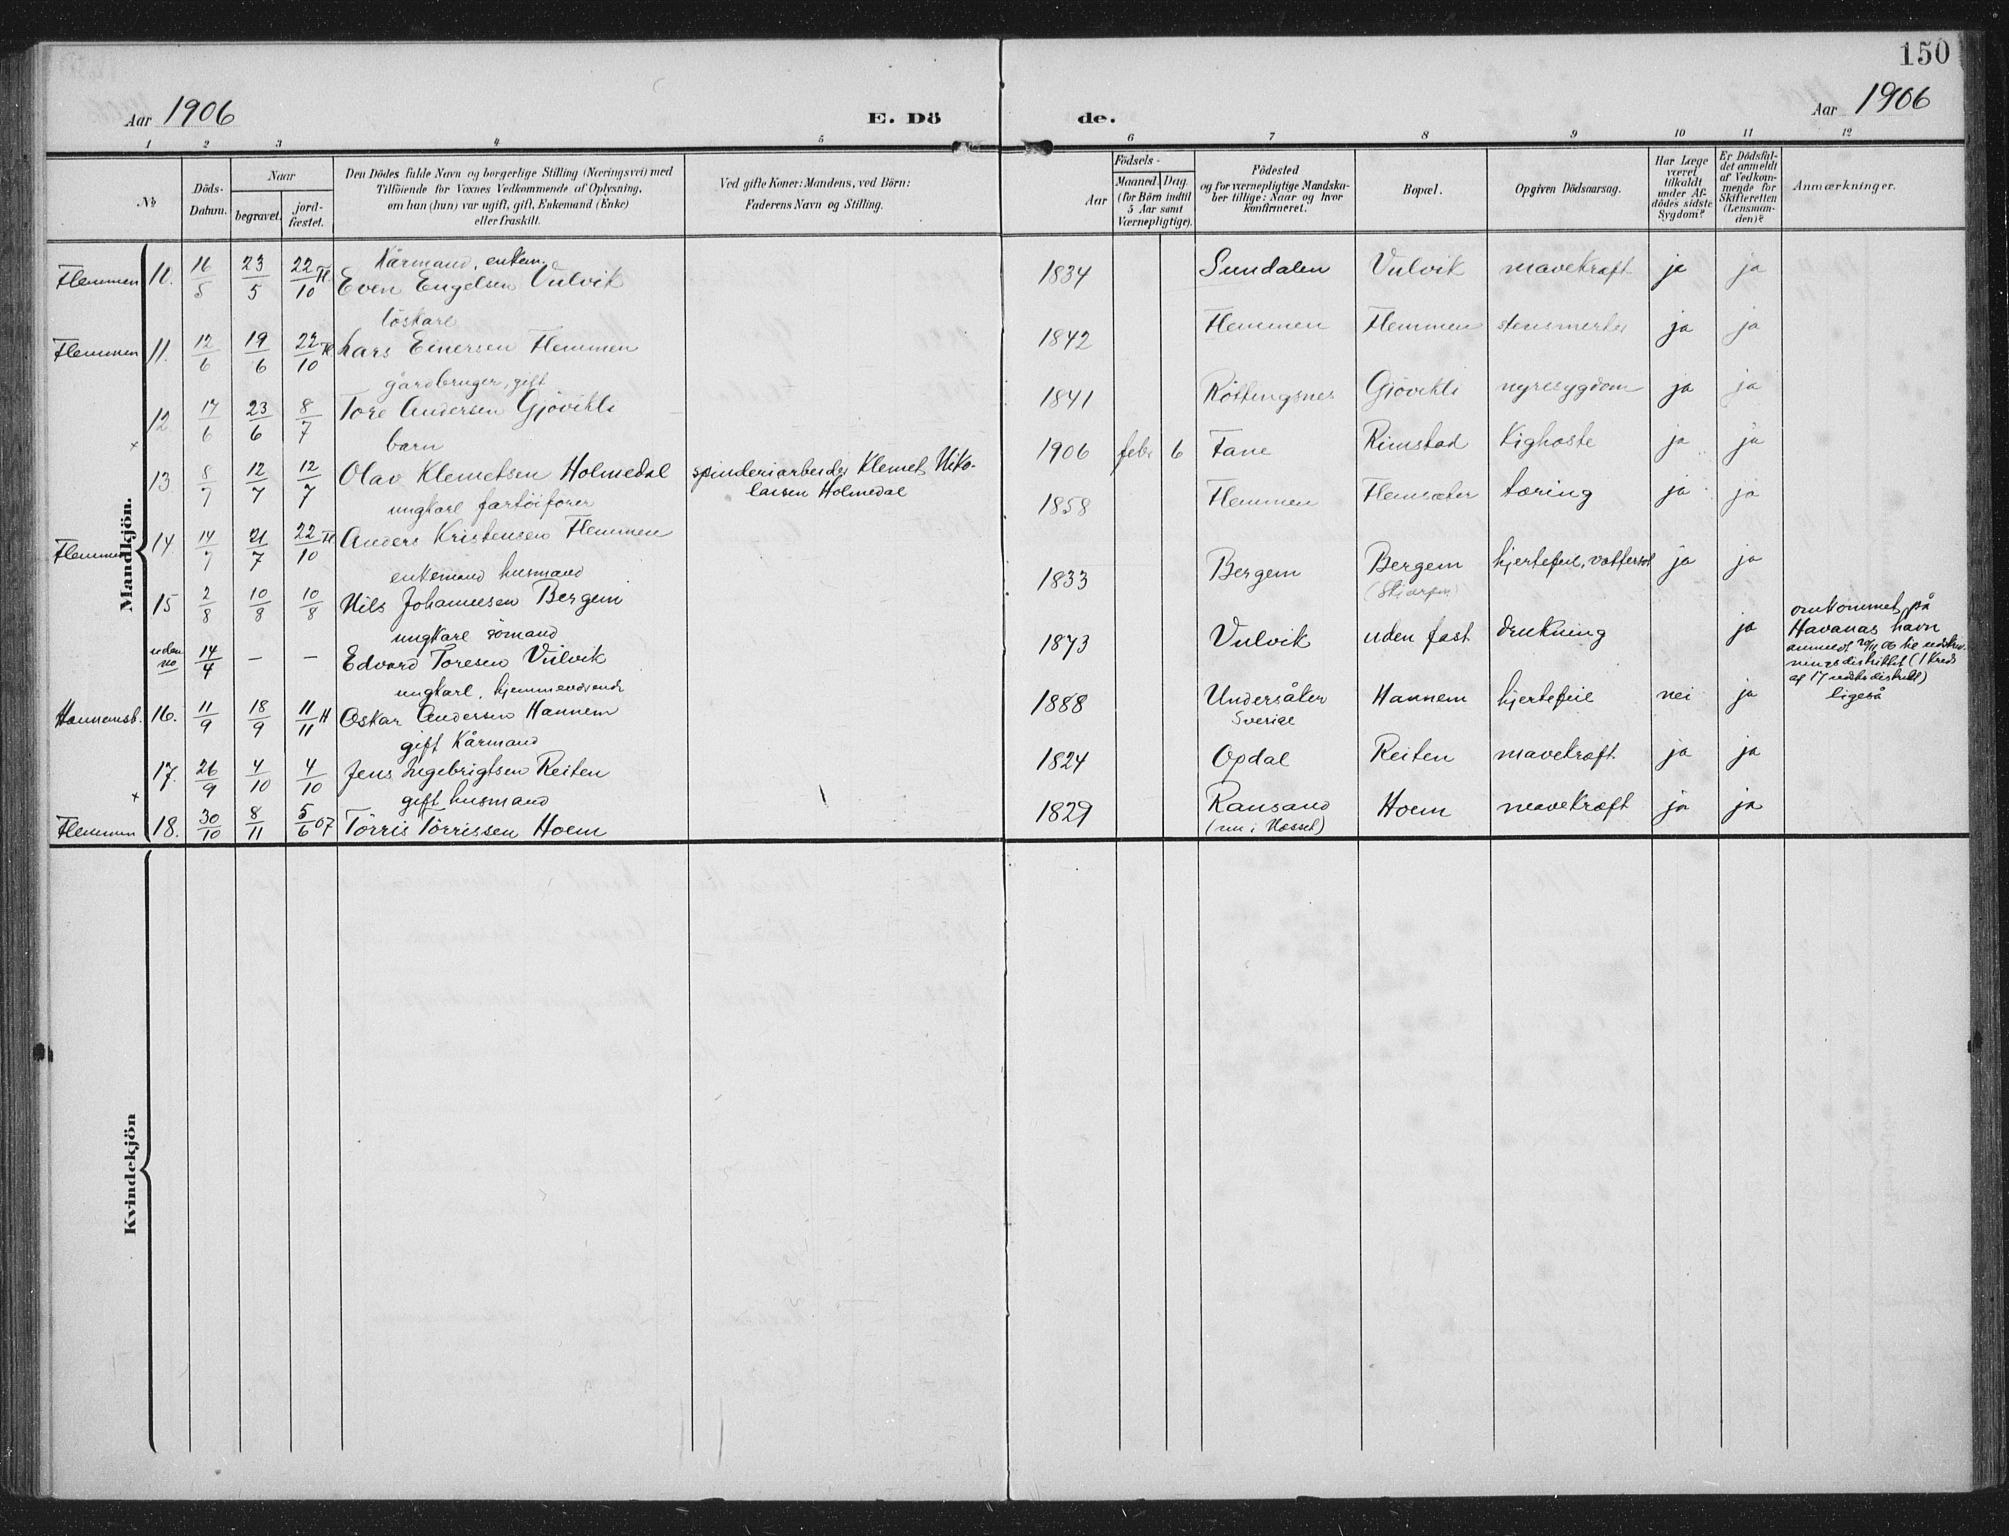 150
Aar 1906 E. Dö de. Aar 1906
1 2 3 4 5 6 7 8 9 10 11 12
No
Döds-
Datum.
Naar
begravet.
jord-
fæstet.
Den Dödes fulde Navn og borgerlige Stilling (Næringsvei) med
Tilföiende for Voxnes Vedkommende af Oplysning,
om han (hun) var ugift, gift, Enkemand (Enke)
eller fraskilt.
Ved gifte Koner: Mandens, ved Börn:
Faderens Navn og Stilling.
Födsels-
Aar
Maaned. Dag.
(for Börn indtil
5 Aar samt
Værnepligtige).
Födested
og for værnepligtige Mandska-
ber tillige: Naar og hvor
konfirmeret.
Bopæl.
Opgiven Dödsaarsag.
Har Læge
været
tilkaldt
under Af-
dödes sidste
Sygdom?
Er Dödsfal-
det anmeldt
af Vedkom-
mende for
Skifteretten
(Lensman-
den)?
Anmærkninger.
Mandkjön.
Kårmand, enkem.
Flemmen 10. 16/5 23/5 22/10 Fl. Even Engelsen Vulvik 1834 Sundalen Vulvik mavekræft ja ja
löskarl
Flemmen 11. 12/6 19/6 22/10 Fl. Lars Einersen Flemmen 1842 Flemmen Flemmen stensmerter ja ja
gårdbruger, gift
12. 17/6 23/6 8/7 Tore Andersen Gjövikli 1841 Röttingsnes Gjövikli nyresygdom ja ja
barn
× 13 8/7 12/7 12/7 Olav Klemetsen Holmedal spinderiarbeider Klemet Niko-
larsen Holmedal 1906 febr 6 Fane Rimstad Kighoste ja ja
ungkarl fartöiförer
Flemmen 14. 14/7 21/7 22/10 Fl Anders Kristensen Flemmen 1858 Flemmen Flemsæter tæring ja ja
enkemand husmand
15 2/8 10/8 10/8 Nils Johannesen Bergem 1833 Bergem Bergem hjertefeil, vattersot ja ja
ungkarl sömand
uden no 14/4 – – Edvard Toresen Vulvik 1873 Vulvik uden fast drukning ja omkommet på
Havanas havn
ungkarl, hjemmeværende
Hannemsb. 16. 11/9 18/9 11/11 H Oskar Andersen Hannem 1888 Undersåker
Sverige Hannem hjertefeil nei ja ligeså
gift Kårmand
17. 26/9 4/10 4/10 Jens Ingebrigtsen Reiten 1824 Opdal Reiten mavekræft ja ja
gift husmand
× Flemmen 18. 30/10 8/11 5/6 07 Törris Törrissen Hoem 1829 Ransand
(nu i Næsset) Hoem mavekræft ja ja
Kvindekjön